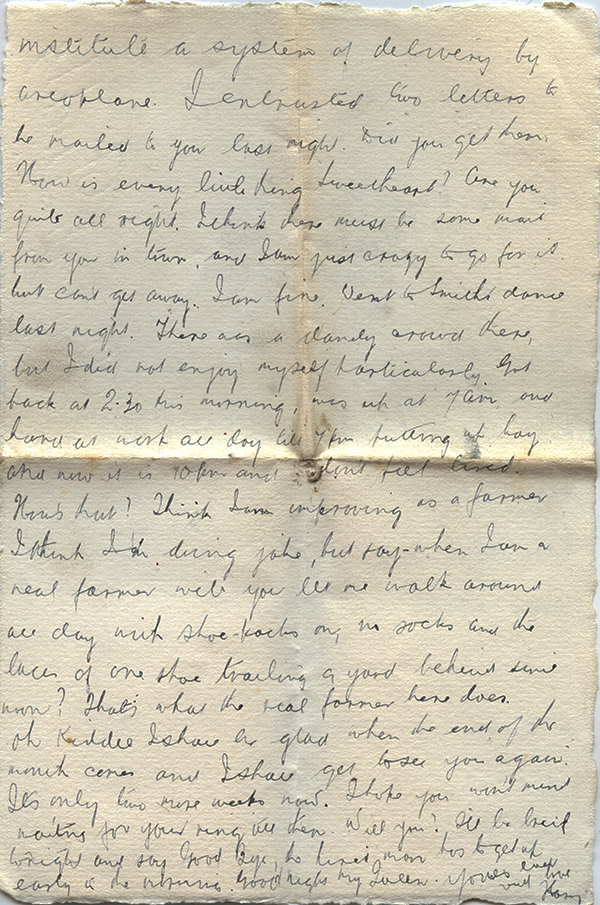 institute a system of delivering by
aeroplane. I entrusted two letters to
be mailed to you last night. Did you get them.
How is every little thing Sweetheart? Are you
quite all right. I think there must be some mail
from you in town, and I am just crazy to go for it
but can't get away. I am fine. Went to Smith's dance
last night. There was a dandy crowd there,
but I did not enjoy myself particularly. Got
back at 2.30 this morning, was up at 7 am and
hard at work all day till 7 pm putting up hay
and now it is 10 pm and I don't feel tired.
How's that? Think I am improving as a farmer
I think I'm doing fine, but say - when I am a
real farmer will you let me walk around
all day with shoe-packs on, no socks and the
laces of one shoe trailing a yard behind since
noon? That's what the real farmer here does.
Oh Kiddie I shall be glad when the end of the
month comes and I shall get to see you again.
It's only two more weeks now. I hope you won't mind
waiting for your ring till then. Will you? I'll be brief
tonight and say Good bye, the hired man has to get up
early in the morning. Good night my Queen. Yours ever
with love
Harry